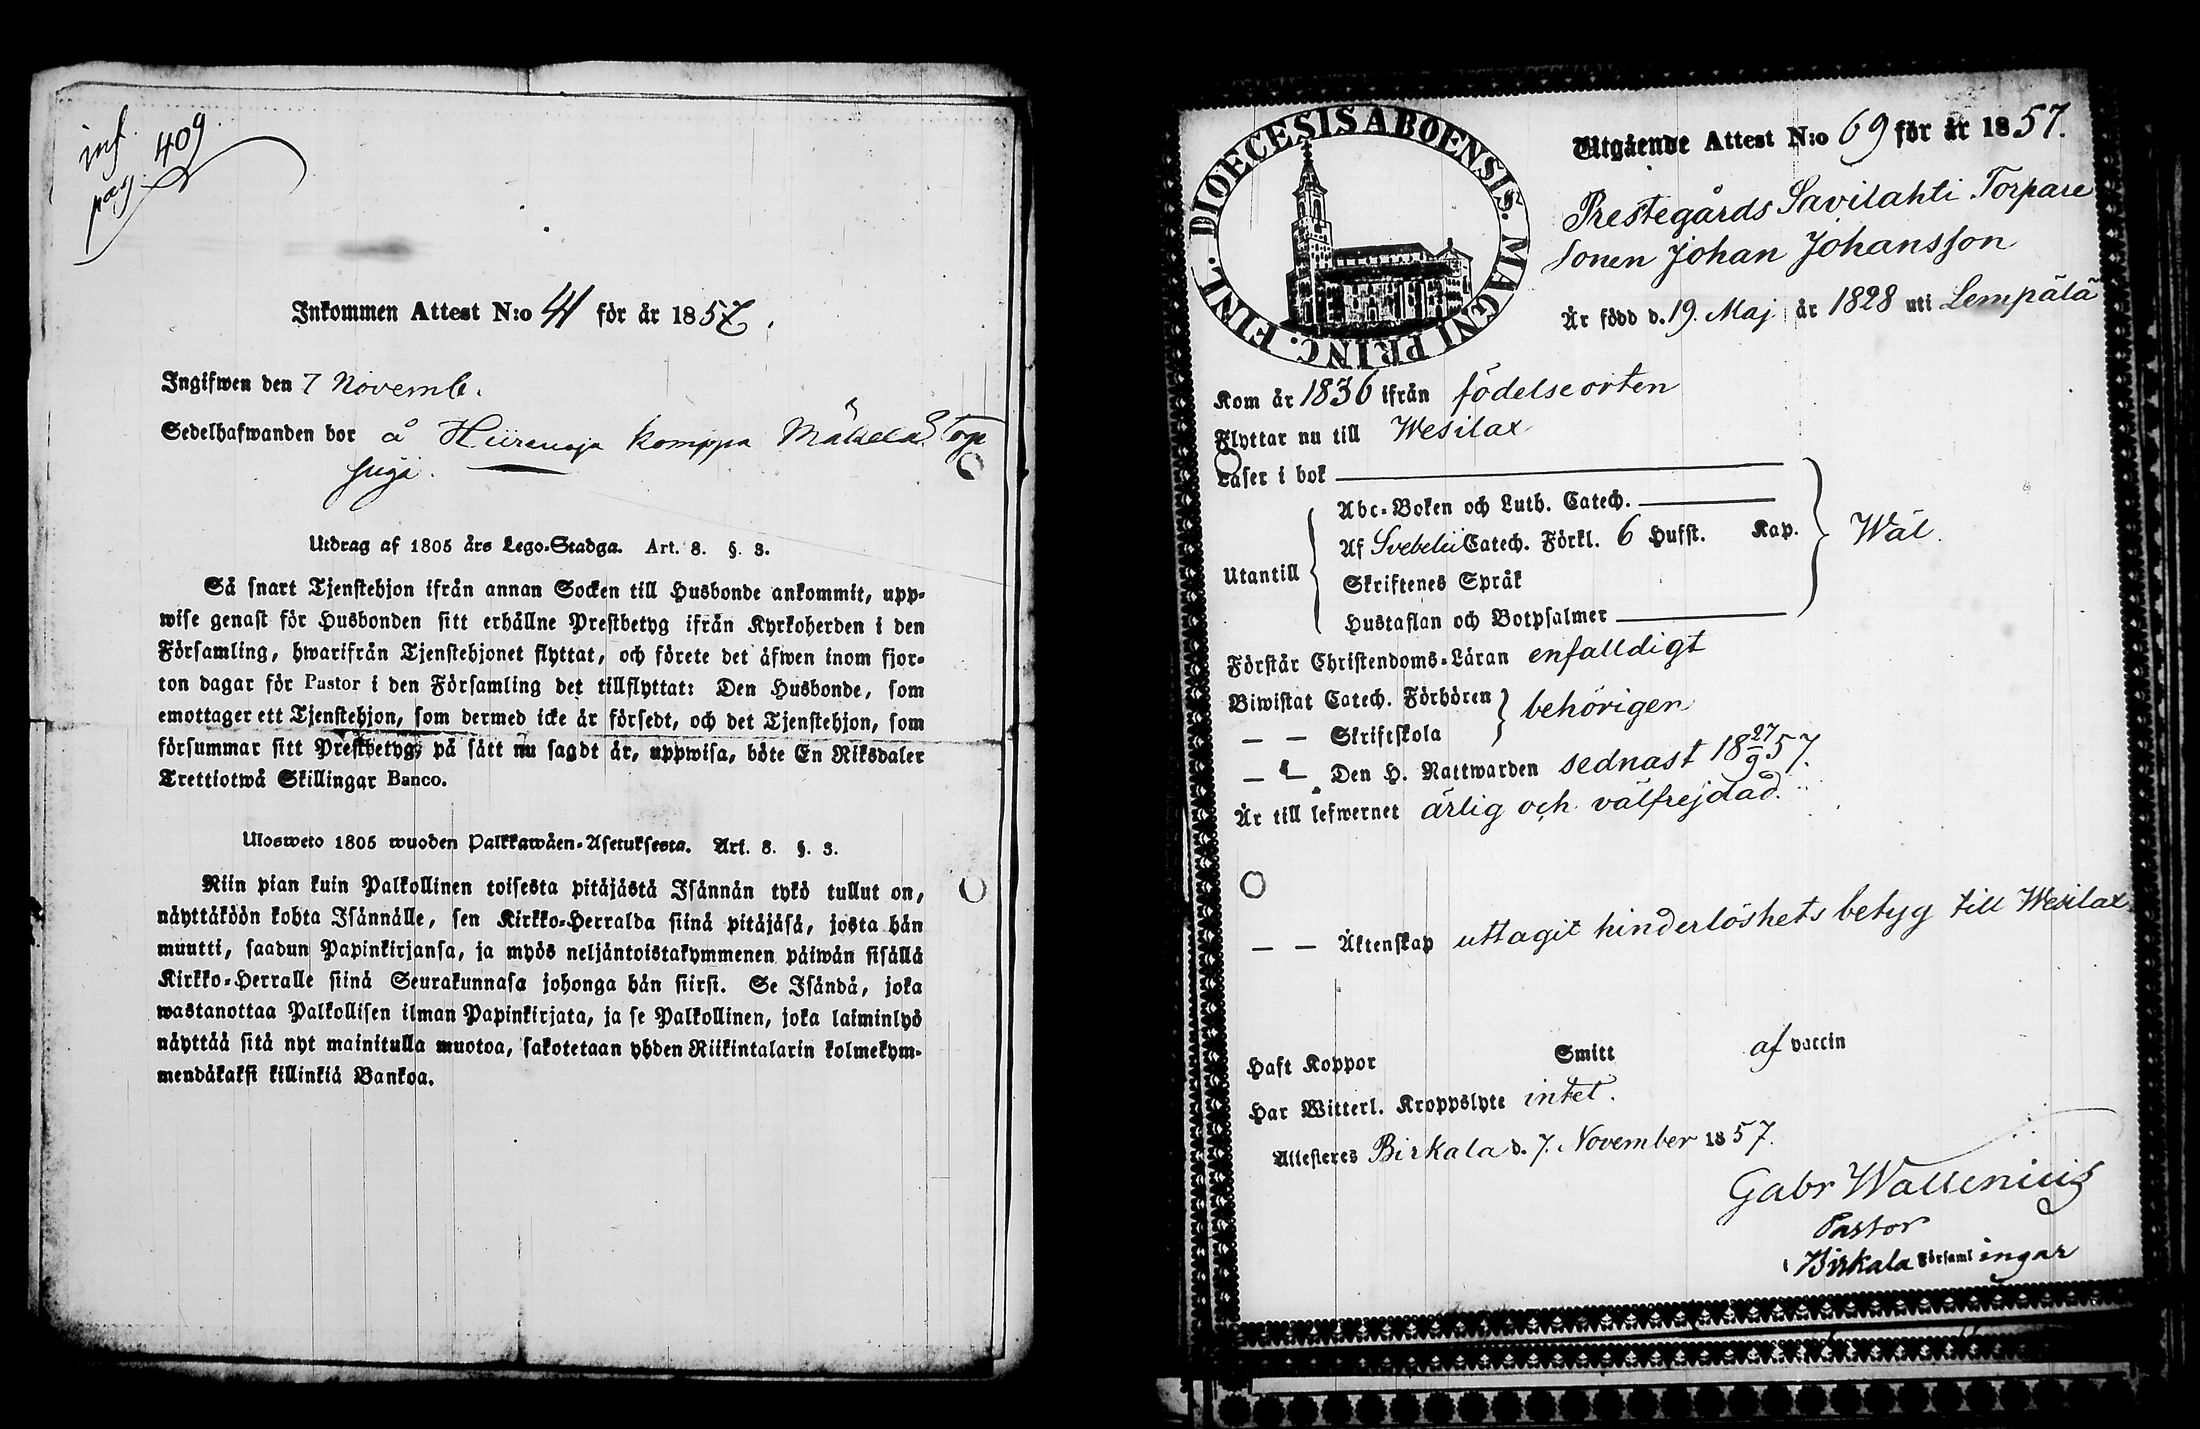 inf.
pag. 409.
Inkommen Attest N:o 41 för år 1857.
Ingifwen den 7 Novemb.
Sedelhafwanden bor å komppa
Utdrag af 1805 års Lego-Stadga. Art. 8. §. 3.
Så snart Tjenstehjon ifrån annan Socken till Husbonde ankommit, upp-
wise genast för Husbonden sitt erhållne Prestbetyg ifrån Kyrkoherden i den
Församling, hwarifrån Tjenstehjonet flyttat, och förete det äfwen inom fjor-
ton dagar för Pastor i den Församling det tillflyttat: Den Husbonde, som
emottager ett Tjenstehjon, som dermed icke är försedt, och det Tjenstehjon, som
försummar sitt Prestbetyg, på sätt nu sagdt är, uppwisa, böte En Riksdaler
Trettiotwå Skillingar Banco.
Ulosweto 1805 wuoden Palkkawäen-Asetuksesta. Art. 8. §. 3.
Niin pian kuin Palkollinen toisesta pitäjästä Isännän tykö tullut on,
näyttäköön kohta Isännälle, sen Kirkko-Herralda siinä pitäjäsä, josta hän
muutti, saadun Papinkirjansa, ja myös neljäntoistakymmenen päiwän sisällä
Kirkko-Herralle siinä Seurakunnasa johonga hän siirsi. Se Isändä, joka
wastanottaa Palkollisen ilman Papinkirjata, ja se Palkollinen, joka laiminlyö
näyttää sitä nyt mainitulla muotoa, sakotetaan yhden Riikintalarin kolmekym-
mendäkaksi killinkiä Bankoa.
DIOECESIS ABOENSIS. MAGNI PRINC. FINL.
Utgående Attest N:o 69 för år 1857.
Prestegårds Savilahti Torpare
sonen Johan Johansson
Är född d. 19. Maj år 1828 uti Lempälä
Kom år 1836 ifrån födelseorten
Flyttar nu till Wesilax
Läser i bok
Abc-Boken och Luth. Catech.
Af Svebelii Catech. Förkl. 6 Hufst. Kap. Wäl.
Utantill
Skriftenes Språk
Hustaflan och Botpsalmer
Förstår Christendoms-Läran enfalldigt
Biwistat Catech. Förhören behörigen
— — Skriftskola
— — Den H. Nattwarden sednast 18 27/9 57.
Är till lefwernet ärlig och välfrejdad.
— — Äktenskap uttagit hinderlöshets betyg till Wesilax
Haft Koppor Smitt af vaccin
Har Witterl. Kroppslyte intet.
Attesteres Birkala d. 7. November 1857.
Gabr Wallenius
Pastor
i Birkala Församlingar